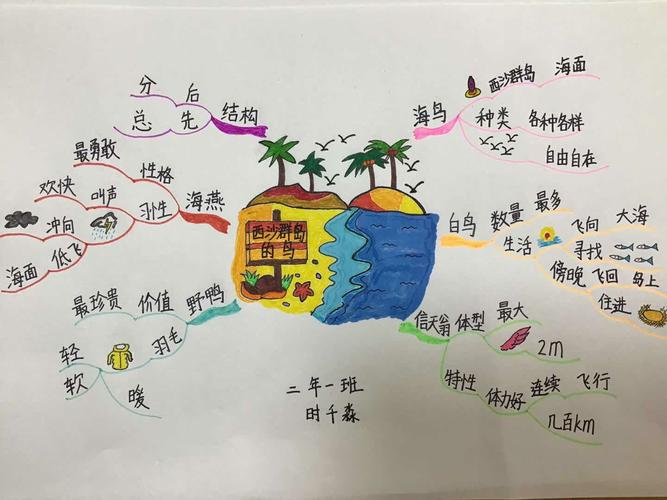 分 后
总 先 结构
最勇敢
性格
欢快 叫声
习性 海燕
冲向
海面 低飞
最珍贵 价值 野鸭
轻 羽毛
软
暖
西沙群岛
的鸟
海鸟
西沙群岛 海面
种类 各种各样
自由自在
白鸟 数量 最多
生活 飞向 大海
寻找
傍晚 飞回 岛上
住进
信天翁 体型 最大
2m
特性 体力好 连续 飞行
几百km
二年一班
时千淼